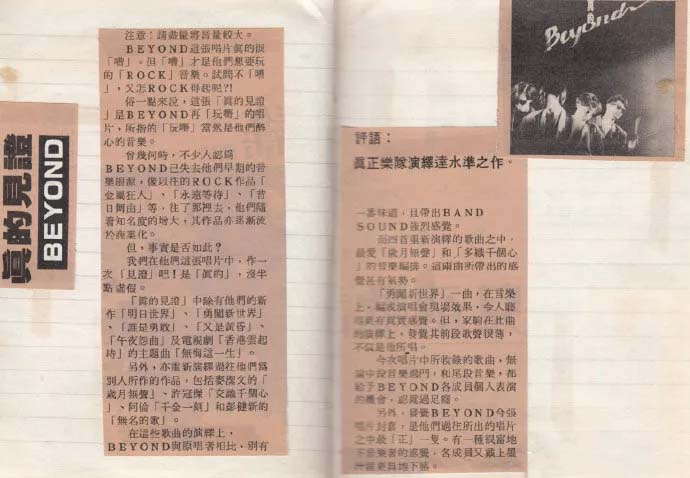 真的見證
BEYOND
注意:請盡量將音量較大。
BEYOND這張唱片真的很
「嘈」。但「嘈」才是他們想要玩
的「ROCK」音樂。試問不「嘈
」,又怎ROCK得起呢?!
俗一點來說,這張「真的見證
」是BEYOND再「玩嘢」的唱
片,所指的「玩嘢」當然是他們醉
心的音樂。
曾幾何時,不少人認爲
BEYOND已失去他們早期的音
樂根源,像以往的ROCK作品「
金屬狂人」、「永遠等待」、「昔
日舞曲」等,往了那裡去,他們隨
着知名度的增大,其作品亦逐漸流
於商業化。
但,事實是否如此?
我們在他們這張唱片中,作一
次「見證」吧!是「真的」,沒半
點虛假。
「真的見證」中除有他們的新
作「明日世界」、「勇闖新世界」
、「誰是勇敢」、「又是黃昏」、
「午夜怨曲」及電視劇「香港雲起
時」的主題曲「無悔這一生」。
另外,亦重新演繹過往他們爲
別人所作的作品,包括麥潔文的「
歲月無聲」、許冠傑「交織千個心
」、阿倫「千金一刻」和彭健新的
「無名的歌」。
在這些歌曲的演繹上,
BEYOND與原唱者相比,別有
Beyond
評語:
眞正樂隊演繹達水準之作。
一番味道,且帶出BAND
SOUND強烈感覺。
而四首重新演繹的歌曲之中,
最愛「歲月無聲」和「多織千個心
」的音樂編排。這兩曲所帶出的感
覺甚有氣勢。
「勇闖新世界」一曲,在音樂
上,編成演唱會現場效果,令人聽
得更有眞實感覺。但,家駒在此曲
的演繹上,發覺其前段歌聲很薄,
不似是他所唱。
今次唱片中所收錄的歌曲,無
論中段音樂過門,和尾段音樂,都
給予BEYOND各成員個人表演
的機會,認眞過足癮。
另外,發覺BEYOND今張
唱片封套,是他們過往所出的唱片
之中最「正」一隻。有一種很富地
下音樂者的感覺,各成員又戴上墨